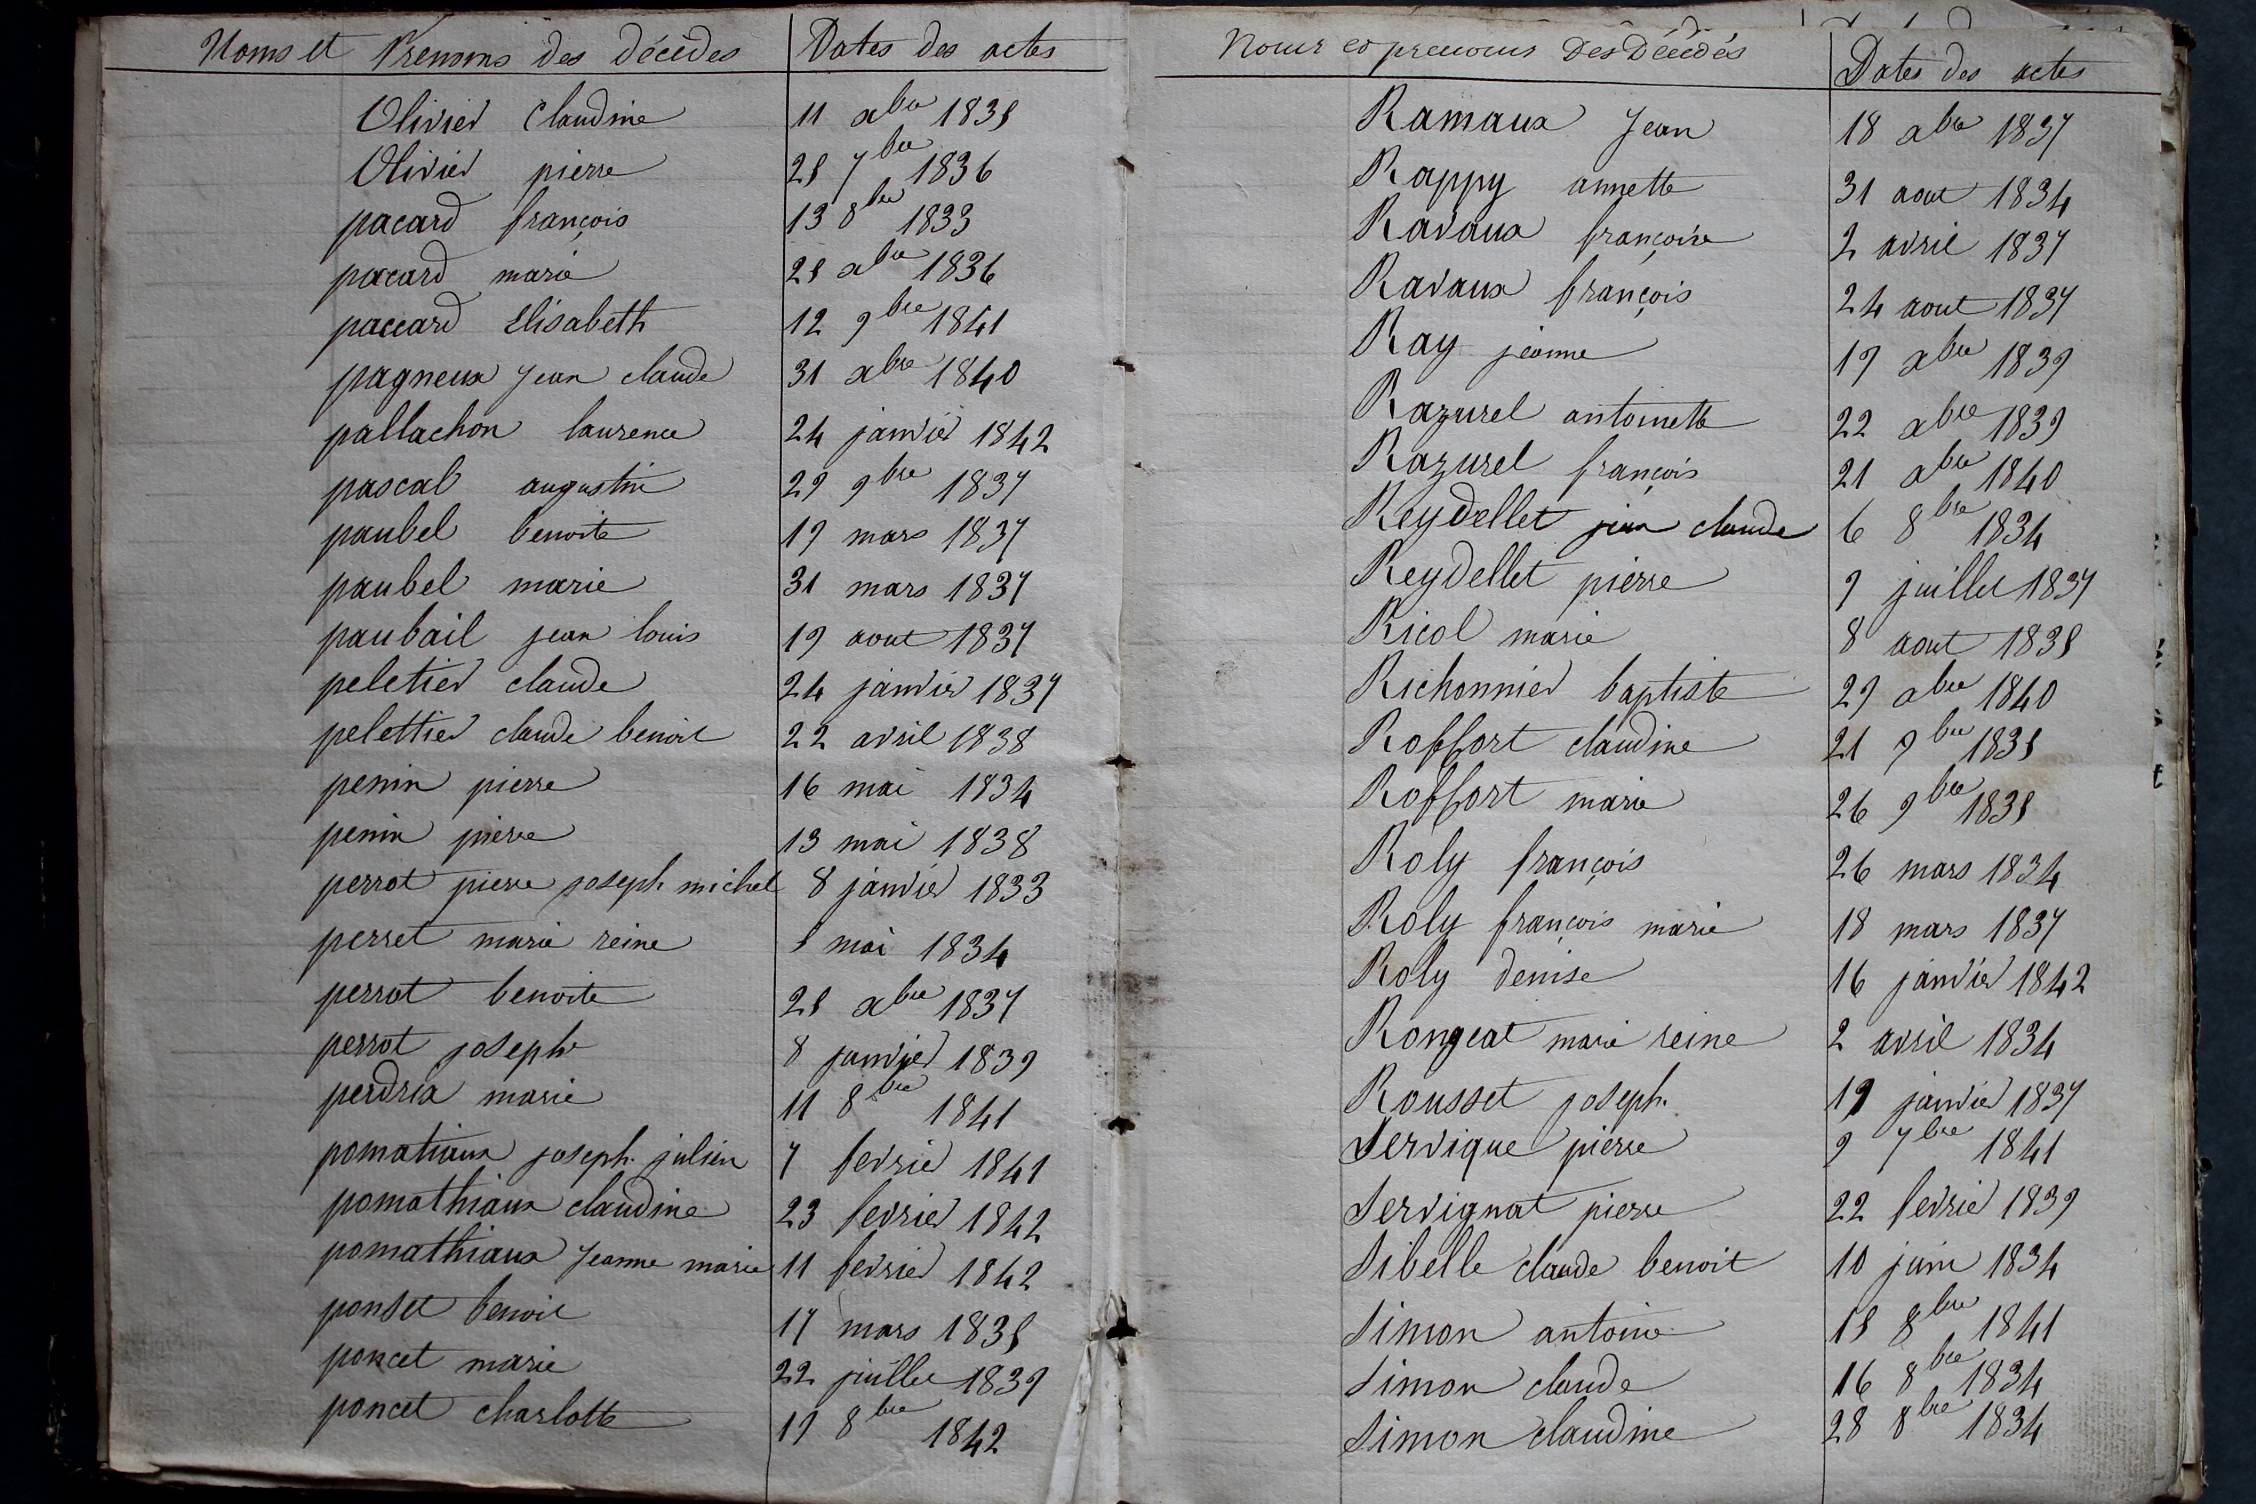 Noms et Prenoms des décédes | Dates des actes
Olivier Claudine 11 xbre 1835
Olivier pierre 25 7bre 1836
pacard françois 13 8bre 1833
pacard marie 25 xbre 1836
paccard Elisabeth 12 9bre 1841
pagneux Jean claude 31 xbre 1840
pallachon laurence 24 janvier 1842
pascal augustin 29 9bre 1837
paubel benoite 19 mars 1837
paubel marie 31 mars 1837
paubail jean louis 19 aout 1837
peletier claude 24 janvier 1837
pelettier claude benoit 22 avril 1838
penin pierre 16 mai 1834
penin pierre 13 mai 1838
perrot pierre joseph michel 8 janvier 1833
perret marie reine 5 mai 1834
perrot benoite 25 xbre 1837
perrot joseph 8 janvier 1839
perdrix marie 11 8bre 1841
pomatiaux joseph julien 7 fevrier 1841
pomathiaux claudine 23 fevrier 1842
pomathiaux Jeanne marie 11 fevrier 1842
ponset benoit 17 mars 1835
poncet marie 22 juillet 1839
poncet charlotte 19 8bre 1842
Noms et prenoms Des Décédés | Dates des actes
Ramaux Jean 18 xbre 1837
Rappy annette 31 aout 1834
Ravaux françoise 2 avril 1837
Ravaux françois 24 aout 1837
Ray jeanne 19 xbre 1839
Razurel antoinette 22 xbre 1839
Razurel françois 21 xbre 1840
Reydellet jean claude 6 8bre 1834
Reydellet pierre 9 juillet 1837
Ricol marie 8 aout 1835
Richonnier baptiste 29 xbre 1840
Roffort claudine 21 9bre 1835
Roffort marie 26 9bre 1835
Roly françois 26 mars 1834
Roly françois marie 18 mars 1837
Roly denise 16 janvier 1842
Rongeat marie reine 2 avril 1834
Rousset joseph 19 janvier 1837
Servique pierre 9 7bre 1841
Servignat pierre 22 fevrier 1839
Sibelle claude benoit 10 juin 1834
Simon antoine 15 8bre 1841
Simon claude 16 8bre 1834
Simon claudine 28 8bre 1834